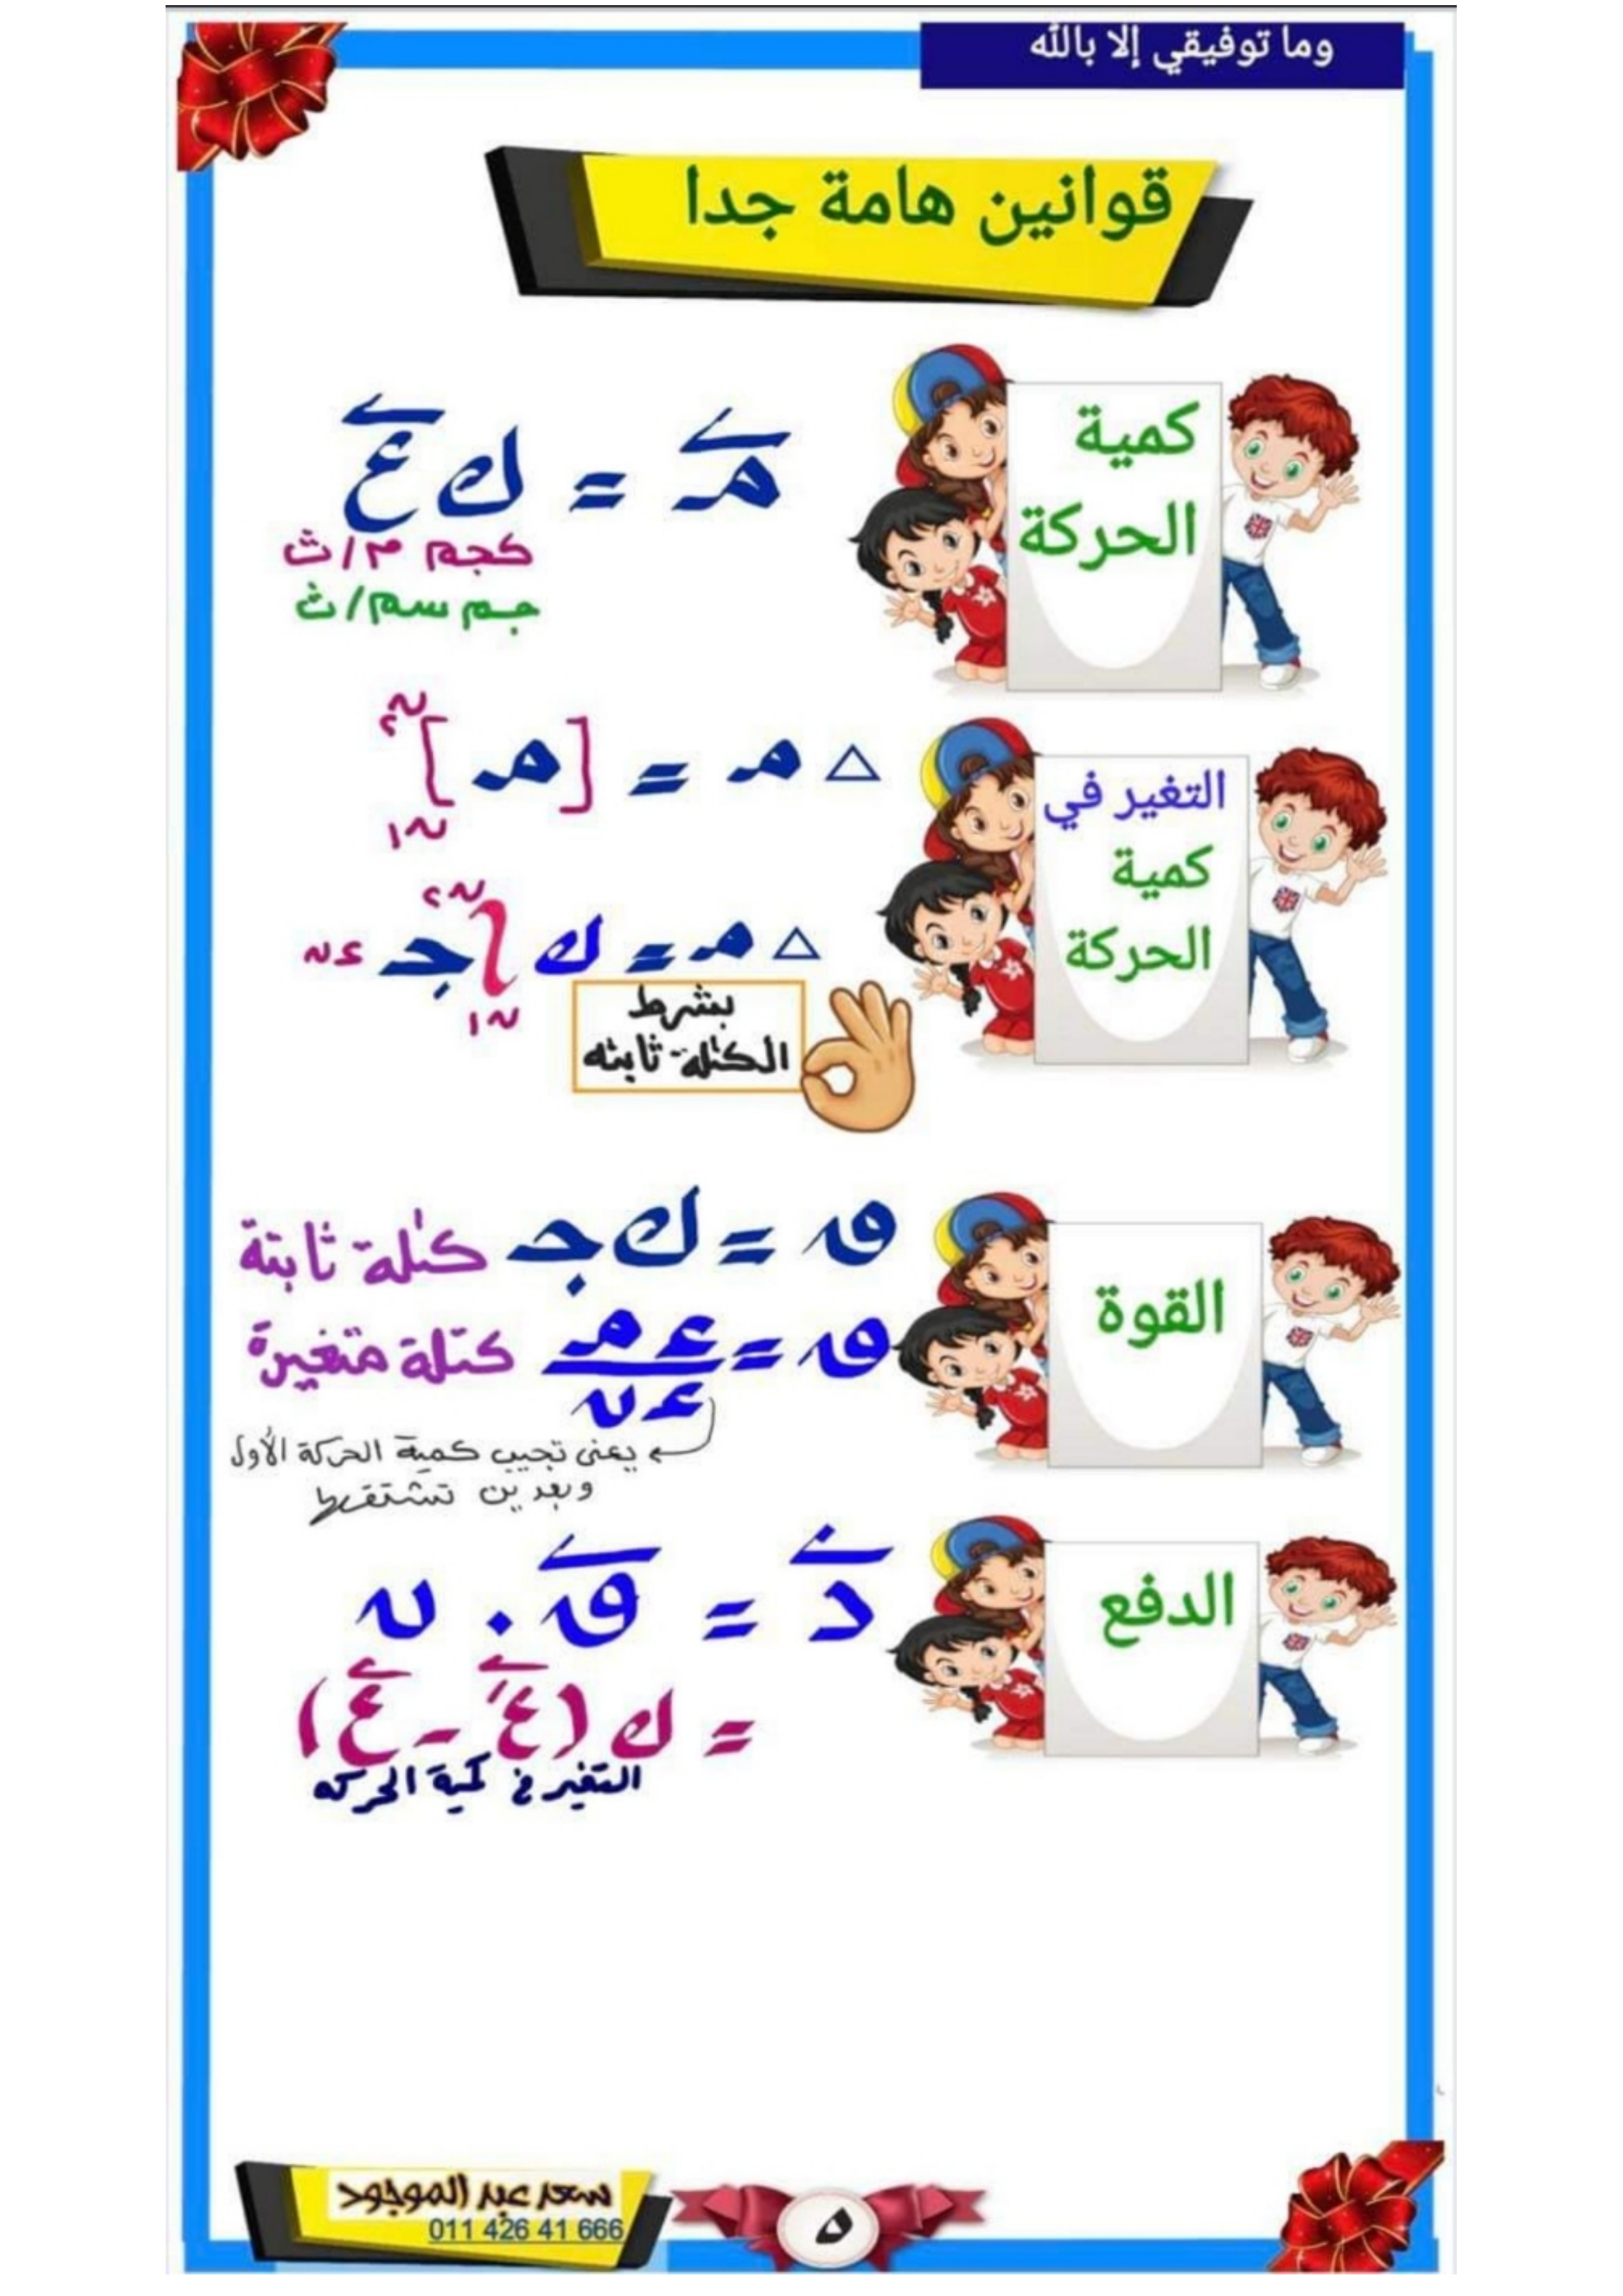 وما توفيقي إلا بالله
قوانين هامة جدا
كمية
الحركة
م = ك ع
كجم م/ث
جم سم/ث
التغير في
كمية
الحركة
△ م = [م]
ن٢
ن١
△ م = ك ∫ جـ ء ن
ن٢
ن١
بشرط
الكتلة ثابته
القوة
ق = ك جـ كتلة ثابتة
ق = ء م / ء ن كتلة متغيرة
يعنى تجيب كمية الحركة الأول
وبعدين تشتقها
الدفع
د = ق . ن
= ك (ع' - ع)
التغير في كمية الحركه
سعد عبد الموجود
011 426 41 666
٥